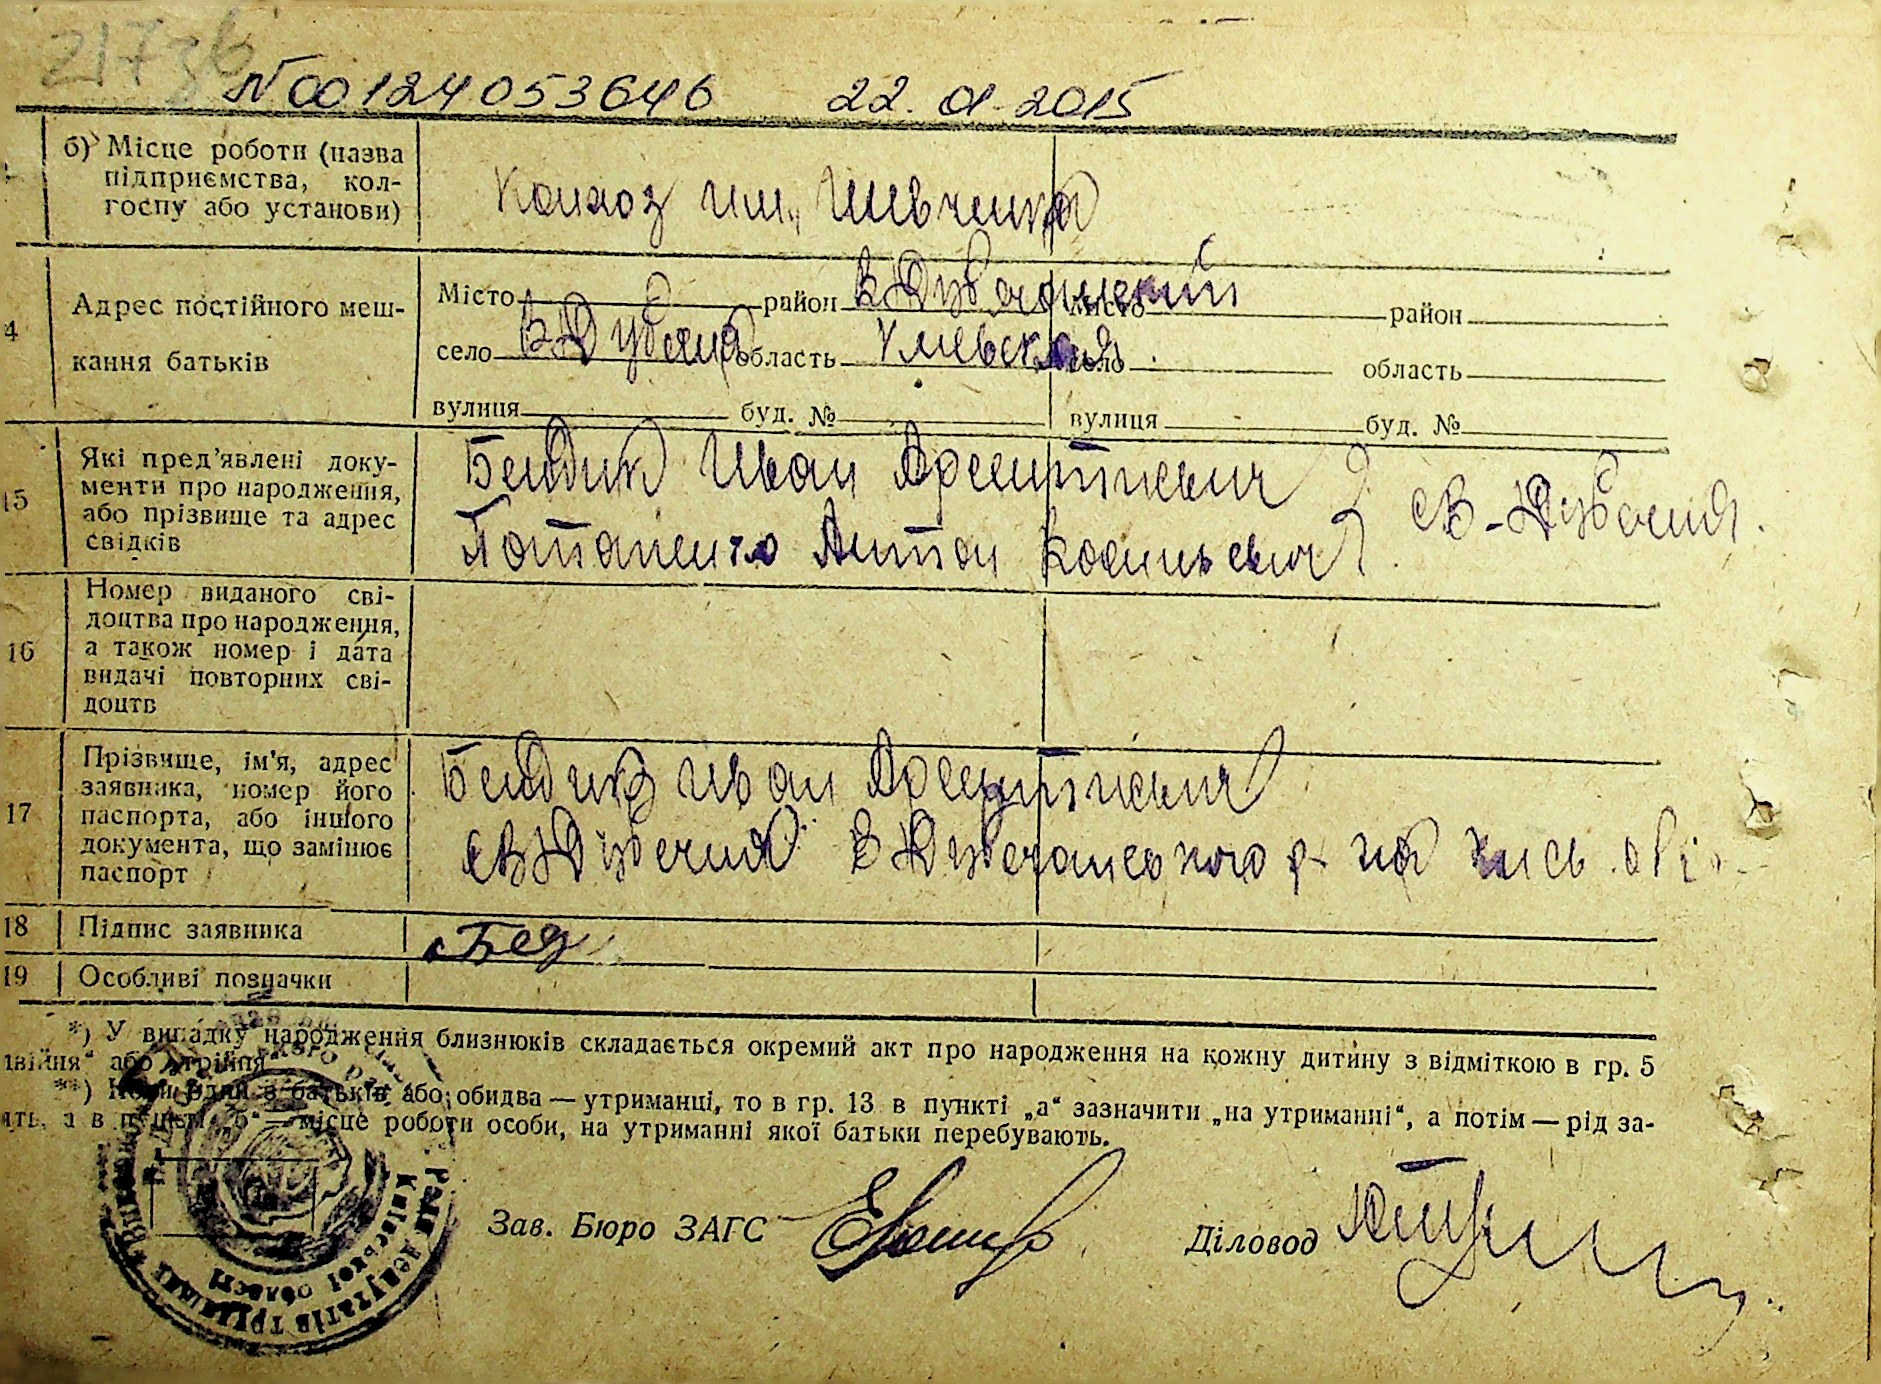 21736
N 00124053646 22.01.2015
б) Місце роботи (назва
підприємства, кол-
госпу або установи)
Колхоз им. Шевченка
4
Адрес постійного меш-
кання батьків
Місто район В Дубечанский Місто район
село В Дубечня область Киевская село область
вулиця буд. № вулиця буд. №
15
Які пред’явлені доку-
менти про народження,
або прізвище та адрес
свідків
Бендик Иван
Потапенко Антон
с В-Дубечня.
16
Номер виданого сві-
доцтва про народження,
а також номер і дата
видачі повторних сві-
доцтв
17
Прізвише, ім'я, адрес
заявника, номер його
паспорта, або іншого
документа, що замінює
паспорт
Бендик Иван
с В Дубечня В Дубечанського р-на Киев. обл.
18 Підпис заявника
Бед
19 Особливі позначки
*) У випадку народження близнюків складається окремий акт про народження на кожну дитину з відміткою в гр. 5
або „трійня“
**) Коли один з батьків або обидва — утриманці, то в гр. 13 в пункті „а“ зазначити „на утриманні“, а потім — рід за-
а в пункті „б“ — місце роботи особи, на утриманні якої батьки перебувають.
Рада депутатів трудящих
Київської області
Зав. Бюро ЗАГС
Діловод